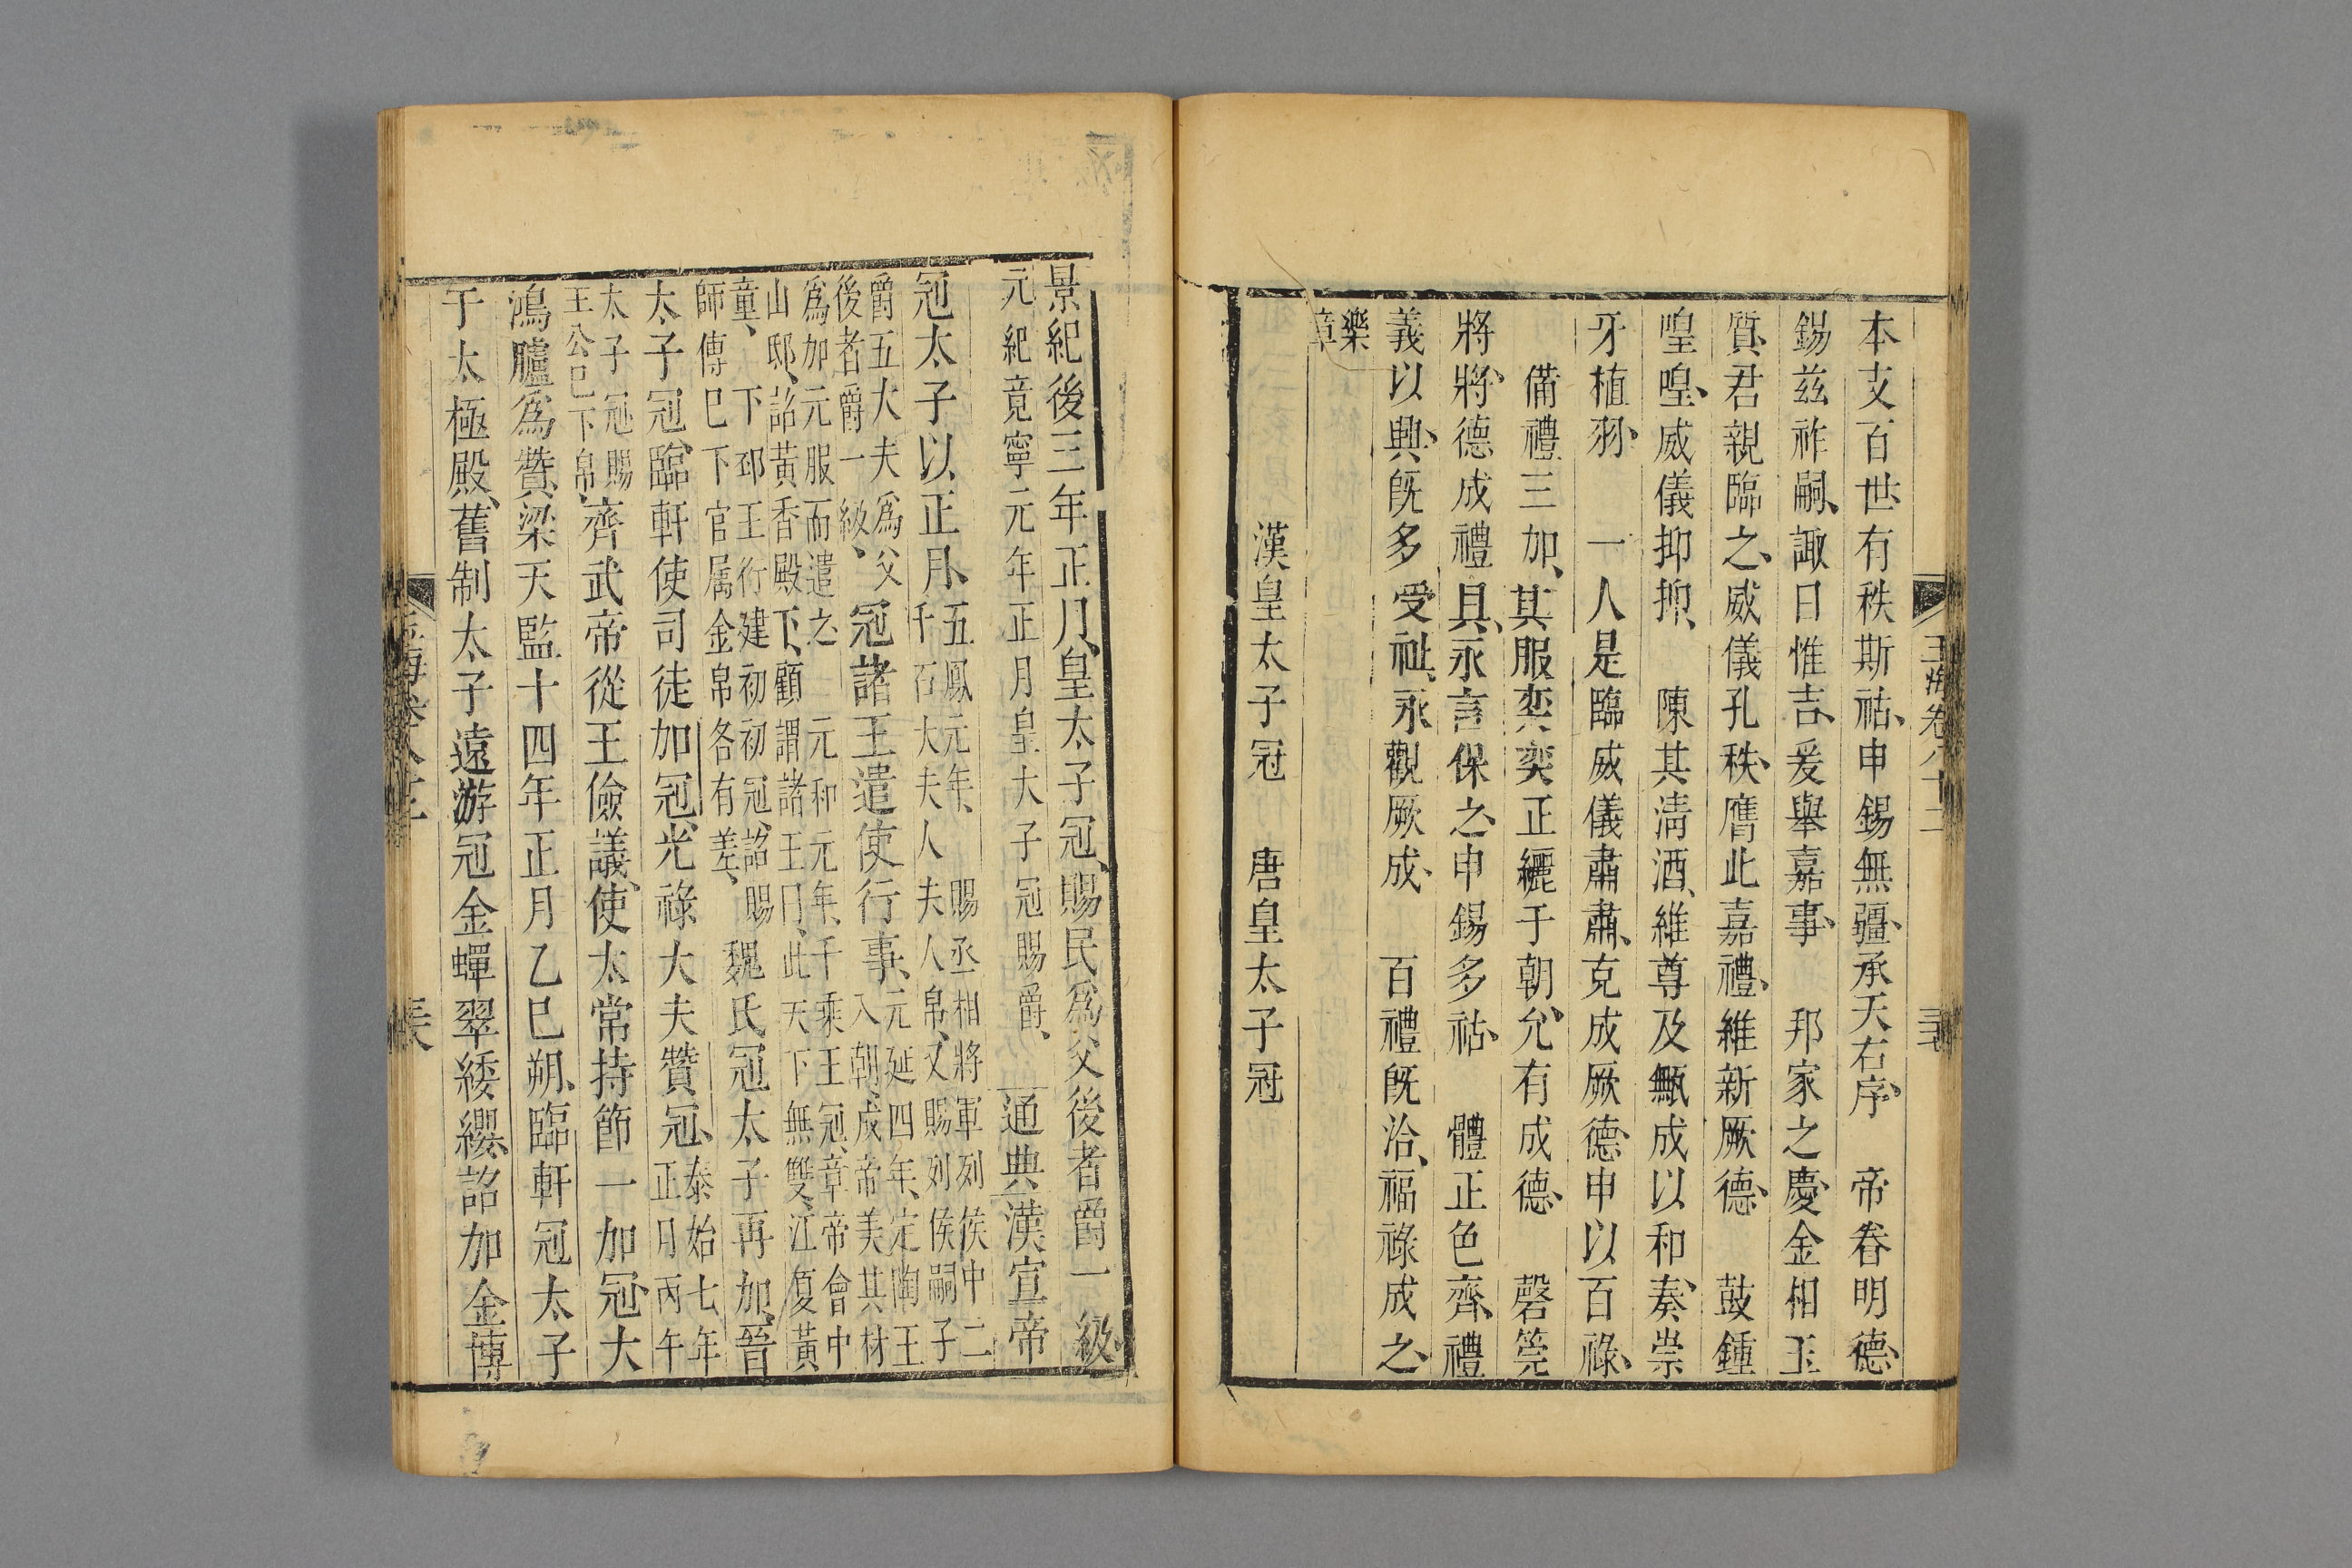 本支百世有秩斯祜、申錫無疆、承天右序、 帝眷明德、
錫茲祚嗣、諏日惟吉、爰舉嘉事、 邦家之慶、金相玉
質、君親臨之、威儀孔秩、膺此嘉禮、維新厥德、 鼓鍾
喤喤、威儀抑抑、 陳其清酒、維尊及甒、成以和奏、崇
牙植羽、 一人是臨、威儀肅肅、克成厥德、申以百祿、
備禮三加、其服奕奕、正纚于朝、允有成德、 磬筦
將將、德成禮具、永言保之、申錫多祜、 體正色齊、禮
義以興、旣多受祉、永觀厥成、 百禮旣洽、福祿成之、
樂
章
漢皇太子冠 唐皇太子冠
景紀後三年正月、皇太子冠、賜民爲父後者爵一級、
元紀竟寧元年正月皇太子冠賜爵、 通典漢宣帝
冠太子以正月、
五鳳元年、 賜丞相將軍列侯中二
千石大夫人夫人帛、又賜列侯嗣子
爵五大夫爲父
後者爵一級、
冠諸王遣使行事、
元延四年、定陶王
入朝、成帝美其材
爲加元服而遣之 元和元年、千乘王冠、章帝會中
山邸、詔黃香殿下、顧謂諸王曰、此天下無雙、江夏黃
童、 下邳王衍建初初冠、詔賜
師傅巳下官屬金帛各有差、
魏氏冠太子再加、晉
太子冠、臨軒使司徒加冠、光祿大夫贊冠、
泰始七年
正月丙午
太子冠賜
王公巳下帛、
齊武帝從王儉議、使太常持節一加冠、大
鴻臚爲贊、梁天監十四年正月乙巳朔、臨軒冠太子
于太極殿、舊制太子遠游冠金蟬翠緌纓、詔加金博